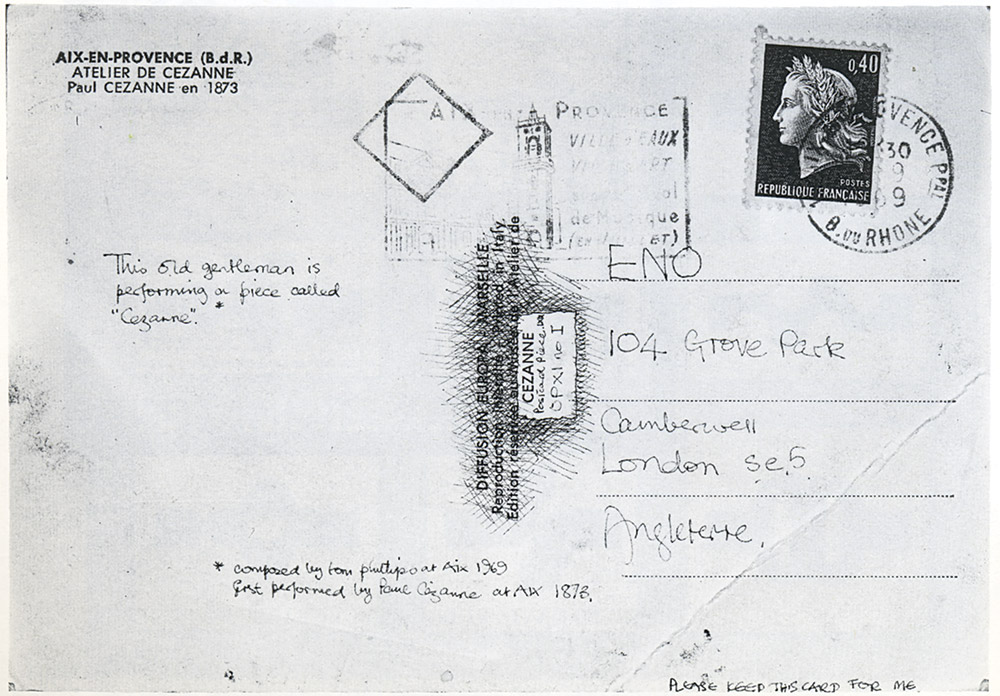 AIX-EN-PROVENCE (B.d.R.)
ATELIER DE CEZANNE
Paul CEZANNE en 1873
PROVENCE
VILLE D'EAUX
de Musique
(EN JUILLET)
0,40
POSTES
REPUBLIQUE FRANÇAISE
PROVENCE PPAL
B. DU RHONE
This old gentleman is
performing a piece called
"Cezanne". *
DIFFUSION EUROPA MARSEILLE
Reproduction interdite Printed in Italy
Edition réservée Atelier de
CEZANNE
Postcard Piece
OP XI no I
ENO
104 Grove Park
Camberwell
London se.5
Angleterre.
* composed by tom phillips at Aix 1969
first performed by Paul Cézanne at AIX 1873.
PLEASE KEEP THIS CARD FOR ME